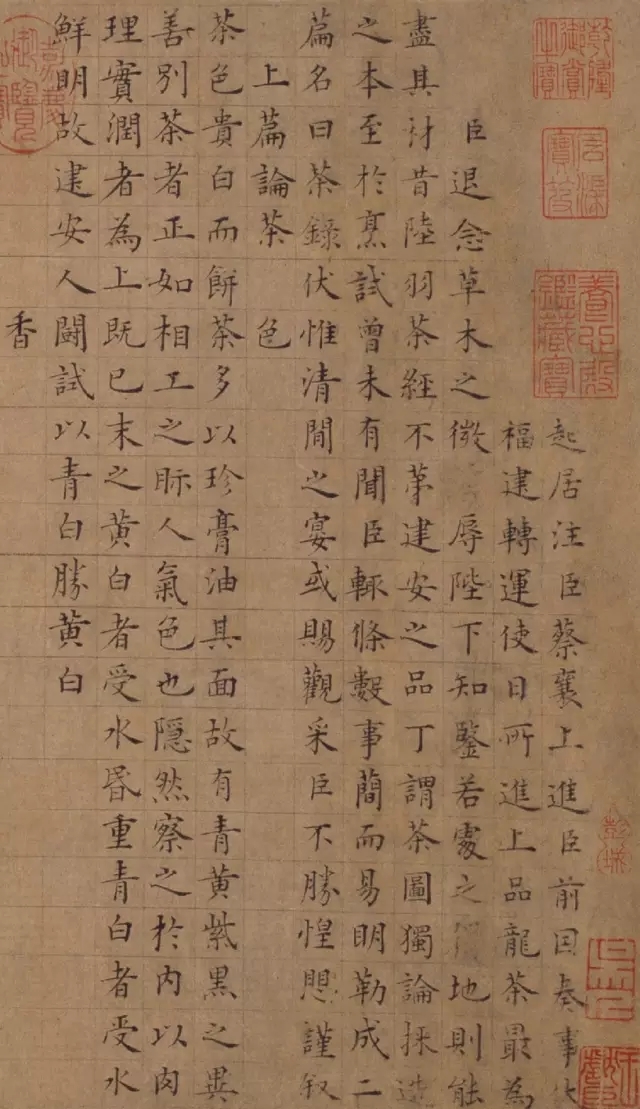 乾隆御賞之寶
石渠寶笈
養心殿鑑藏寶
起居注臣蔡襄上進臣前因奏事
福建轉運使日所進上品龍茶最為
臣退念草木之微辱陛下知鑒若處之得地則能
盡其材昔陸羽茶經不第建安之品丁謂茶圖獨論採造
之本至於烹試曾未有聞臣輒條數事簡而易明勒成二
篇名曰茶錄伏惟清閒之宴或賜觀采臣不勝惶懼謹叙
上篇論茶 色
茶色貴白而餅茶多以珍膏油其面故有青黃紫黑之異
善別茶者正如相工之眎人氣色也隱然察之於內以肉
理實潤者為上既已末之黃白者受水昏重青白者受水
鮮明故建安人鬪試以青白勝黃白
香
嘉慶御覽之寶